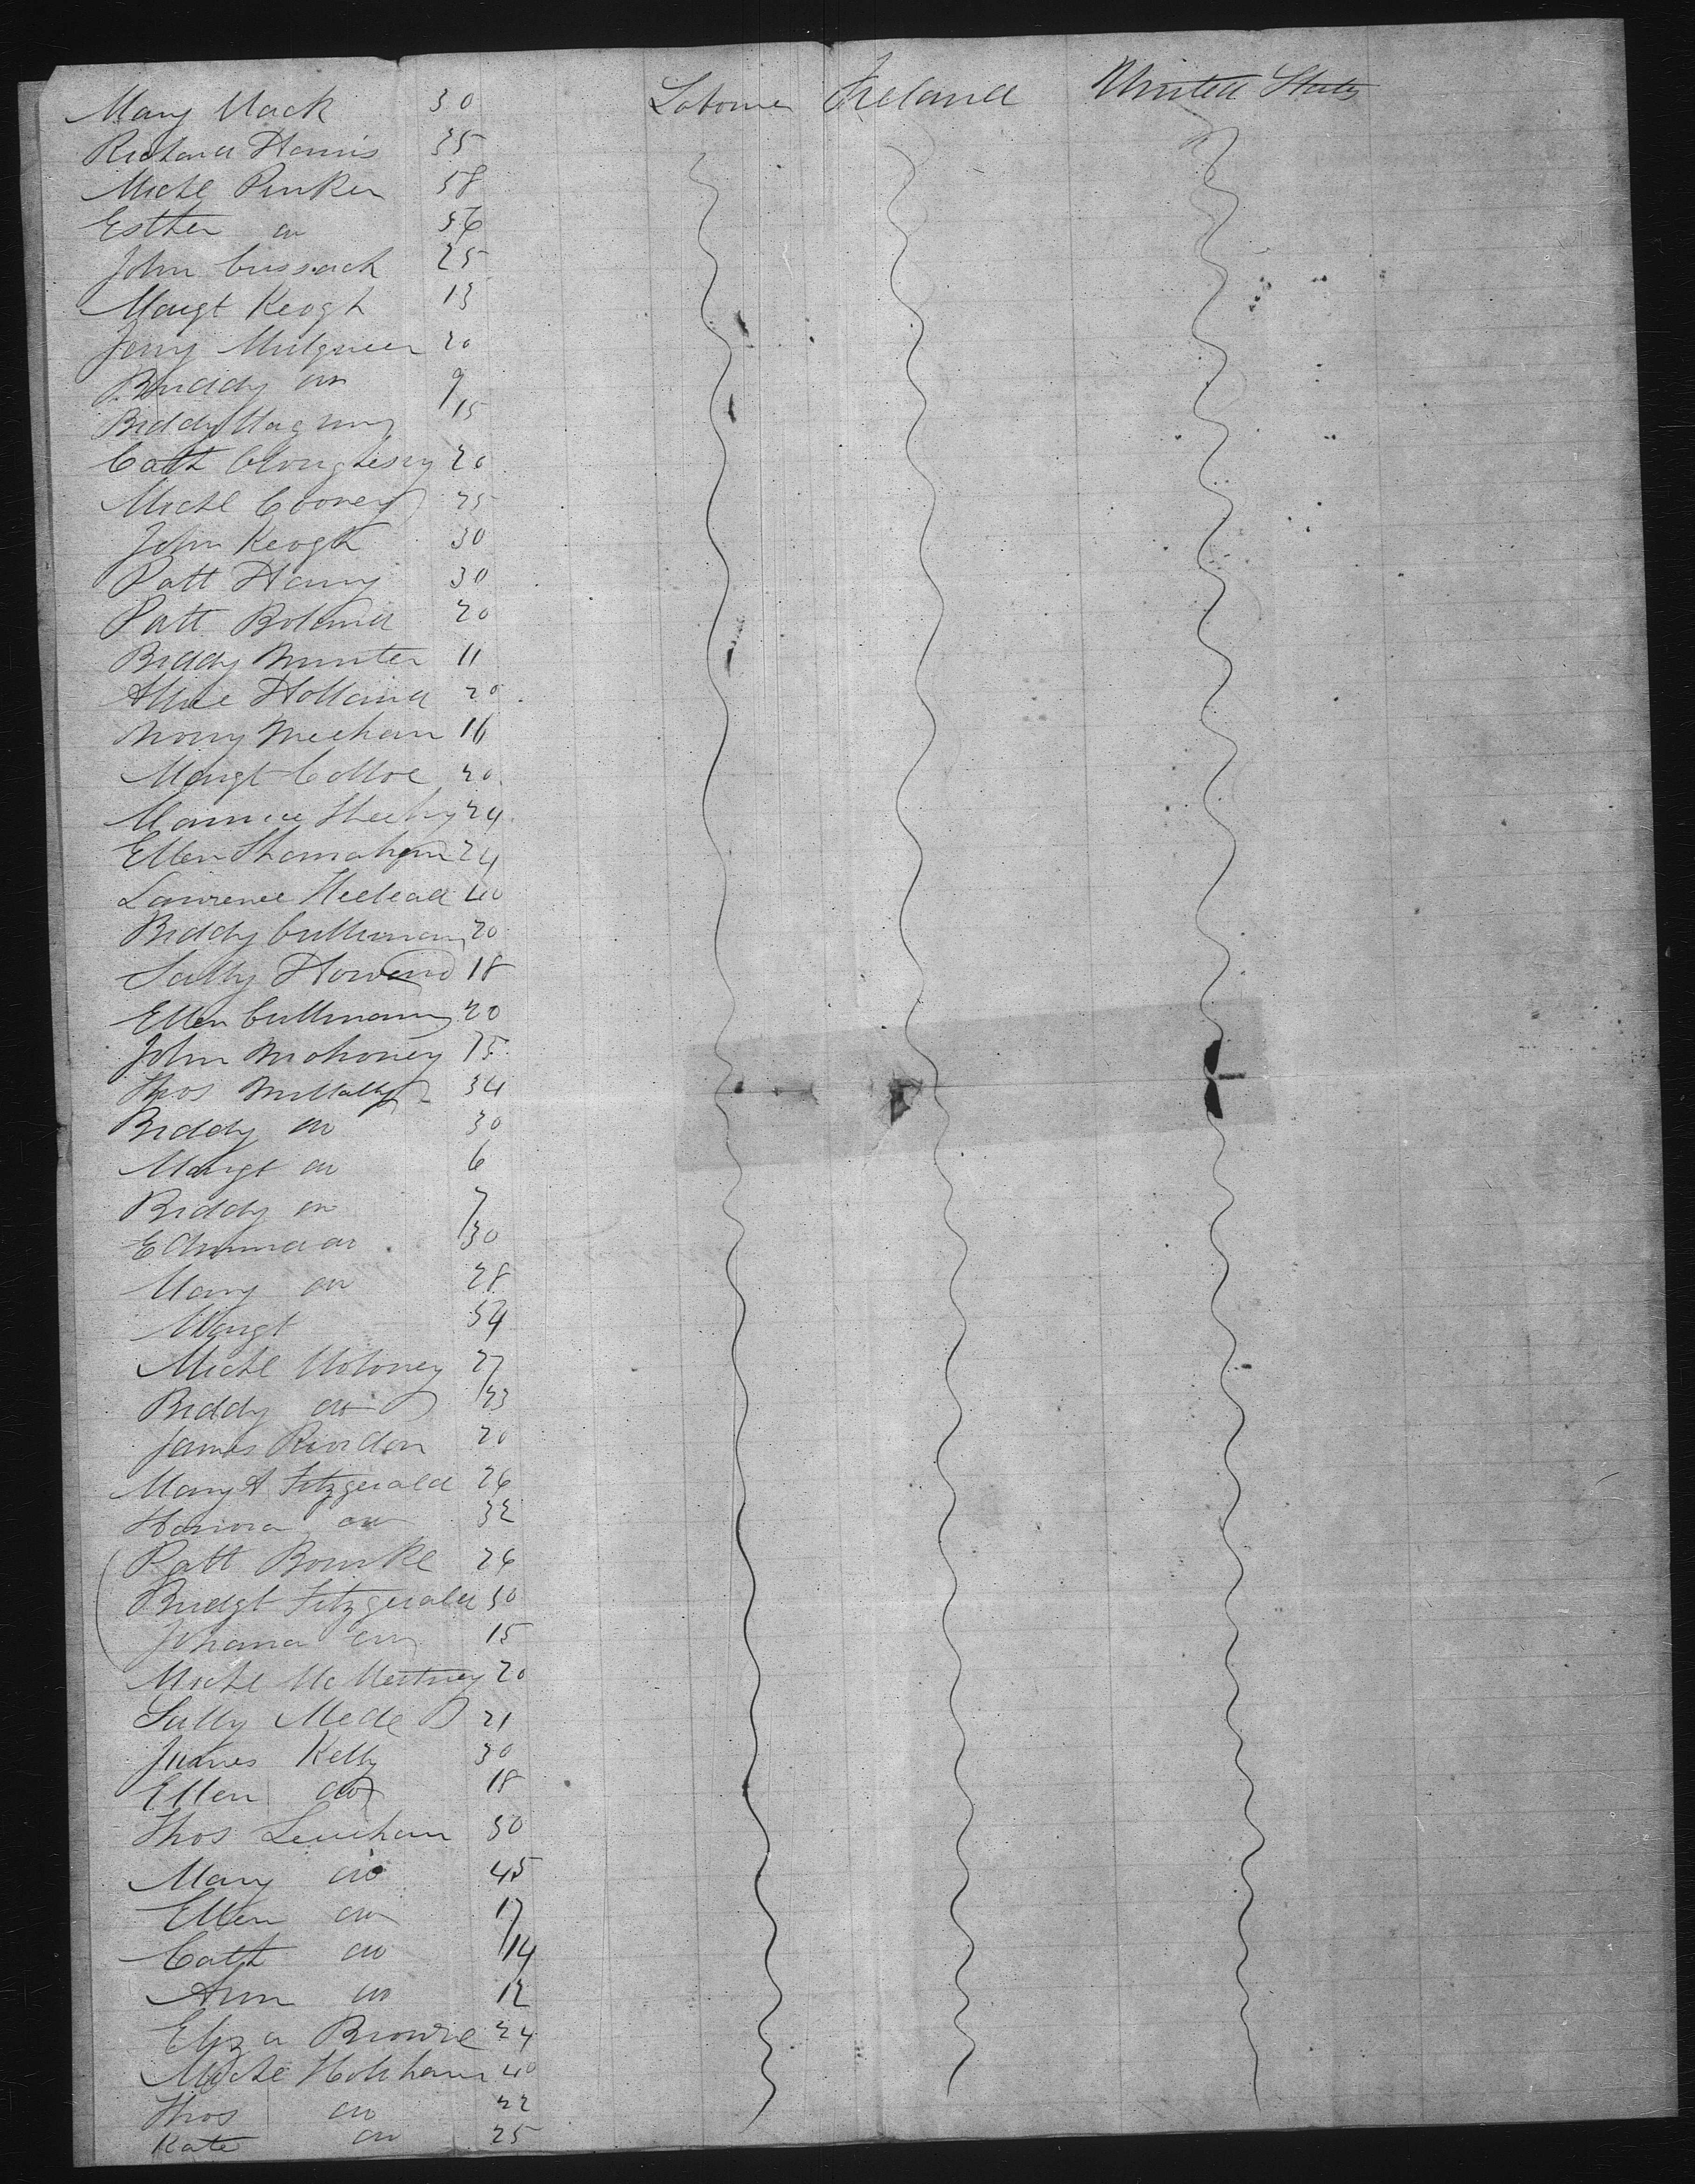 Mary Mack 30 Laborer Ireland United States
Richard Harris 35
Michl Pinker 58
Esther do 56
John Cussack 25
Margt Keogh 13
Jerry Mulqueen 20
Biddy do 9
Biddy 15
Cath Cloughesey 20
Michl Cooney 25
John Keogh 30
Patt Harry 30
Patt Boland 20
Biddy Minter 11
Allice Holland 20
Norry Meehan 16
Margt 20
Maurice Sheehy 24
Ellen Shanahan 24
Lawrence 40
Biddy Cullinan 20
Sally Howard 18
Ellen Cullinan 20
John Mahoney 15
Thos McNally 34
Biddy do 30
Margt do 6
Biddy do 7
Edmund do 30
Mary do 28
Margt 54
Michl Moloney 27
Biddy do 23
James Riordon 20
Mary A Fitzgerald 26
Honora do 32
Patt Bourke 26
Bridgt Fitzgerald 30
Johana do 15
Michl 20
Sally Mede 21
James Kelly 30
Ellen do 18
Thos Lenihan 50
Mary do 45
Ellen do 17
Cath do 14
Ann do 12
Eliza Browne 24
Michl Holihan 40
Thos do 22
Kate do 25